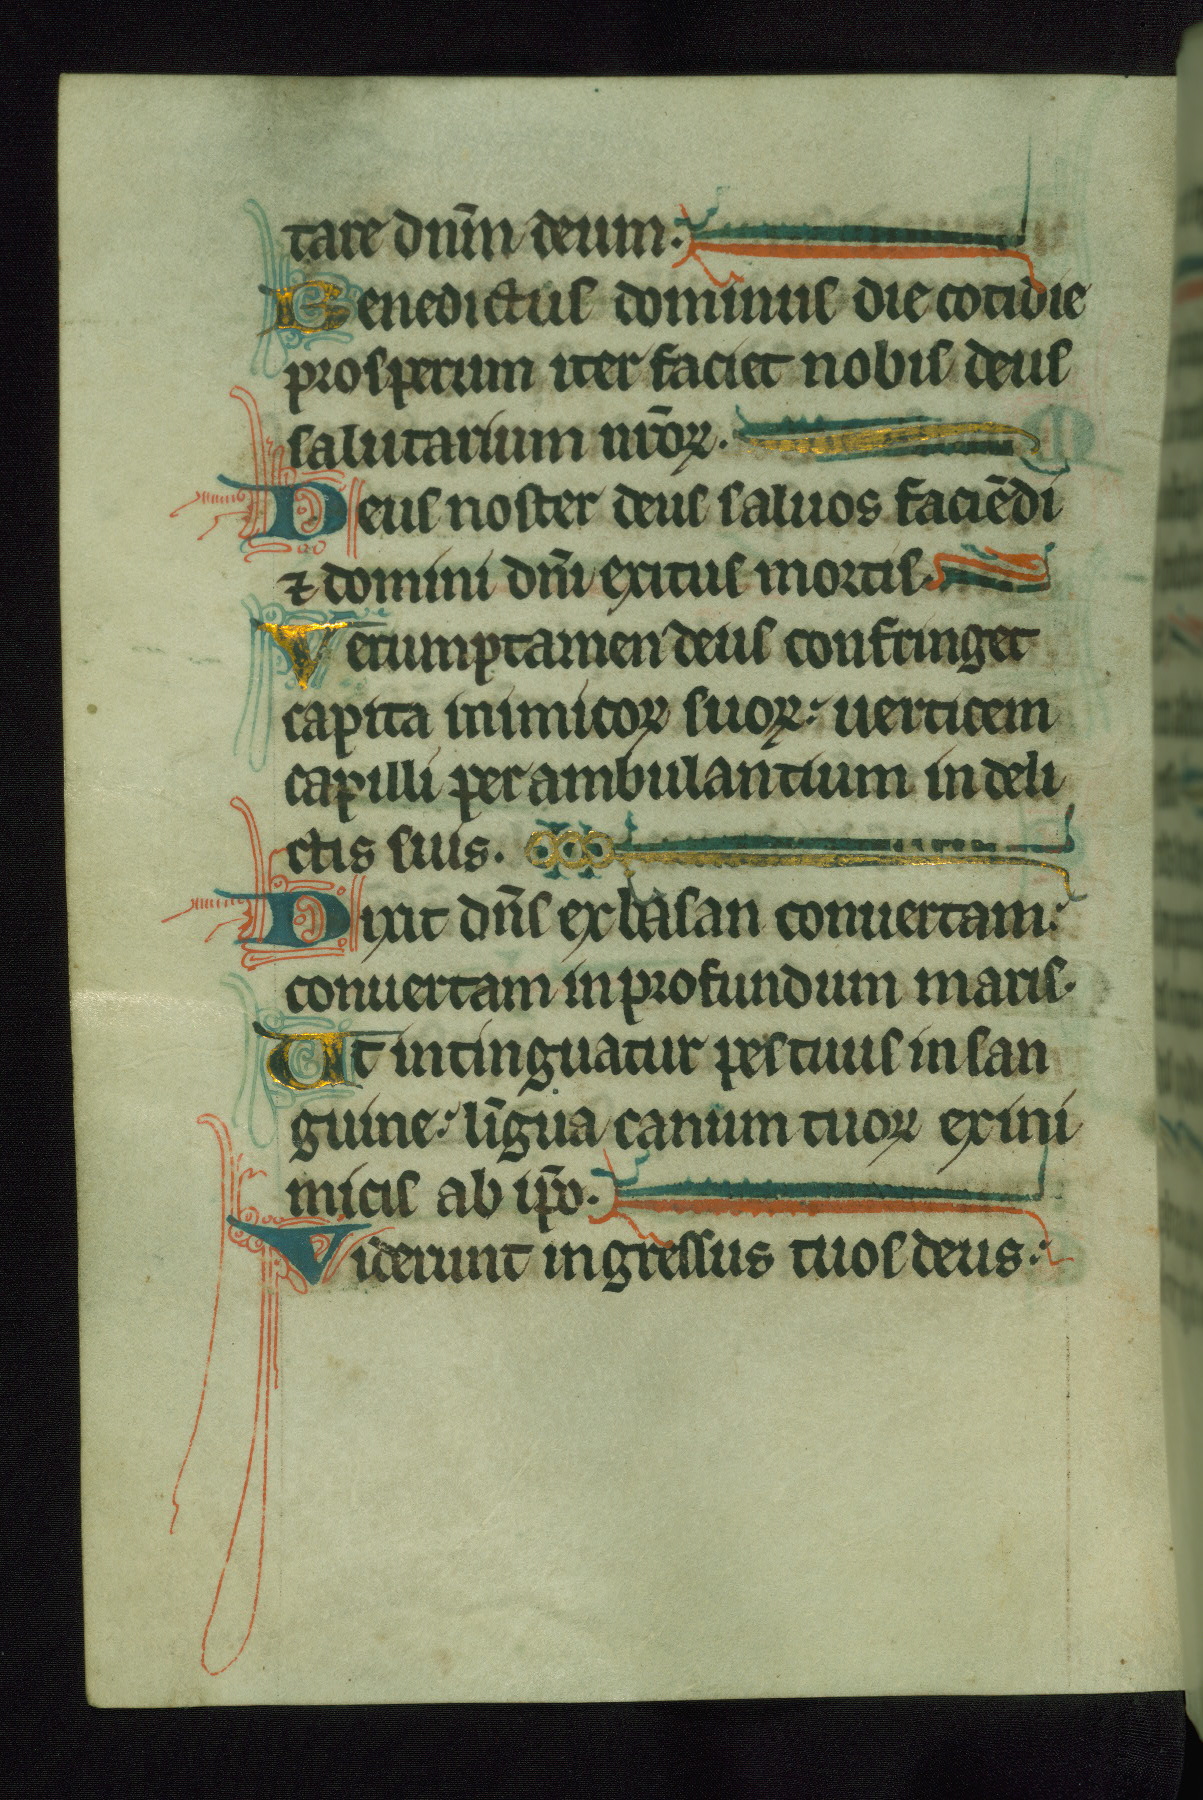 tare dnm̄ deum.
Benedictus dominus die cotidie
prosperum iter faciet nobis deus
salutarium nr̄oꝝ.
Deus noster deus saluos faciēdi
⁊ domini dn̄i exitus mortis.
Verumptamen deus confringet
capita inimicoꝝ suoꝝ: uerticem
capilli perambulantium in deli
ctis suis.
Dixit dn̄s ex basan conuertam:
conuertam in profundum maris.
Ut intinguatur pes tuus in san
guine: līgua canum tuoꝝ ex ini
micis ab ip̄o.
Viderunt ingressus tuos deus: